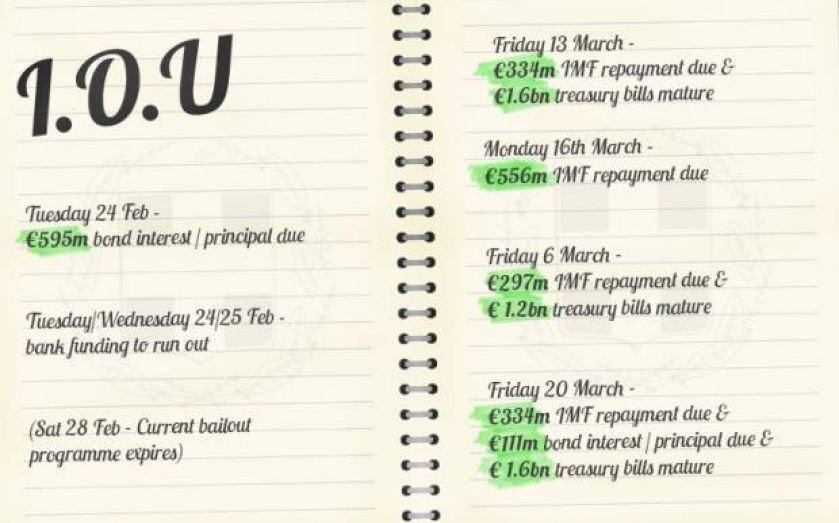 I.O.U
Tuesday 24 Feb -
€595m bond interest / principal due
Tuesday/Wednesday 24/25 Feb -
bank funding to run out
(Sat 28 Feb - Current bailout
programme expires)
Friday 13 March -
€334m IMF repayment due &
€1.6bn treasury bills mature
Monday 16th March -
€556m IMF repayment due
Friday 6 March -
€297m IMF repayment due &
€ 1.2bn treasury bills mature
Friday 20 March -
€334m IMF repayment due &
€111m bond interest / principal due &
€ 1.6bn treasury bills mature